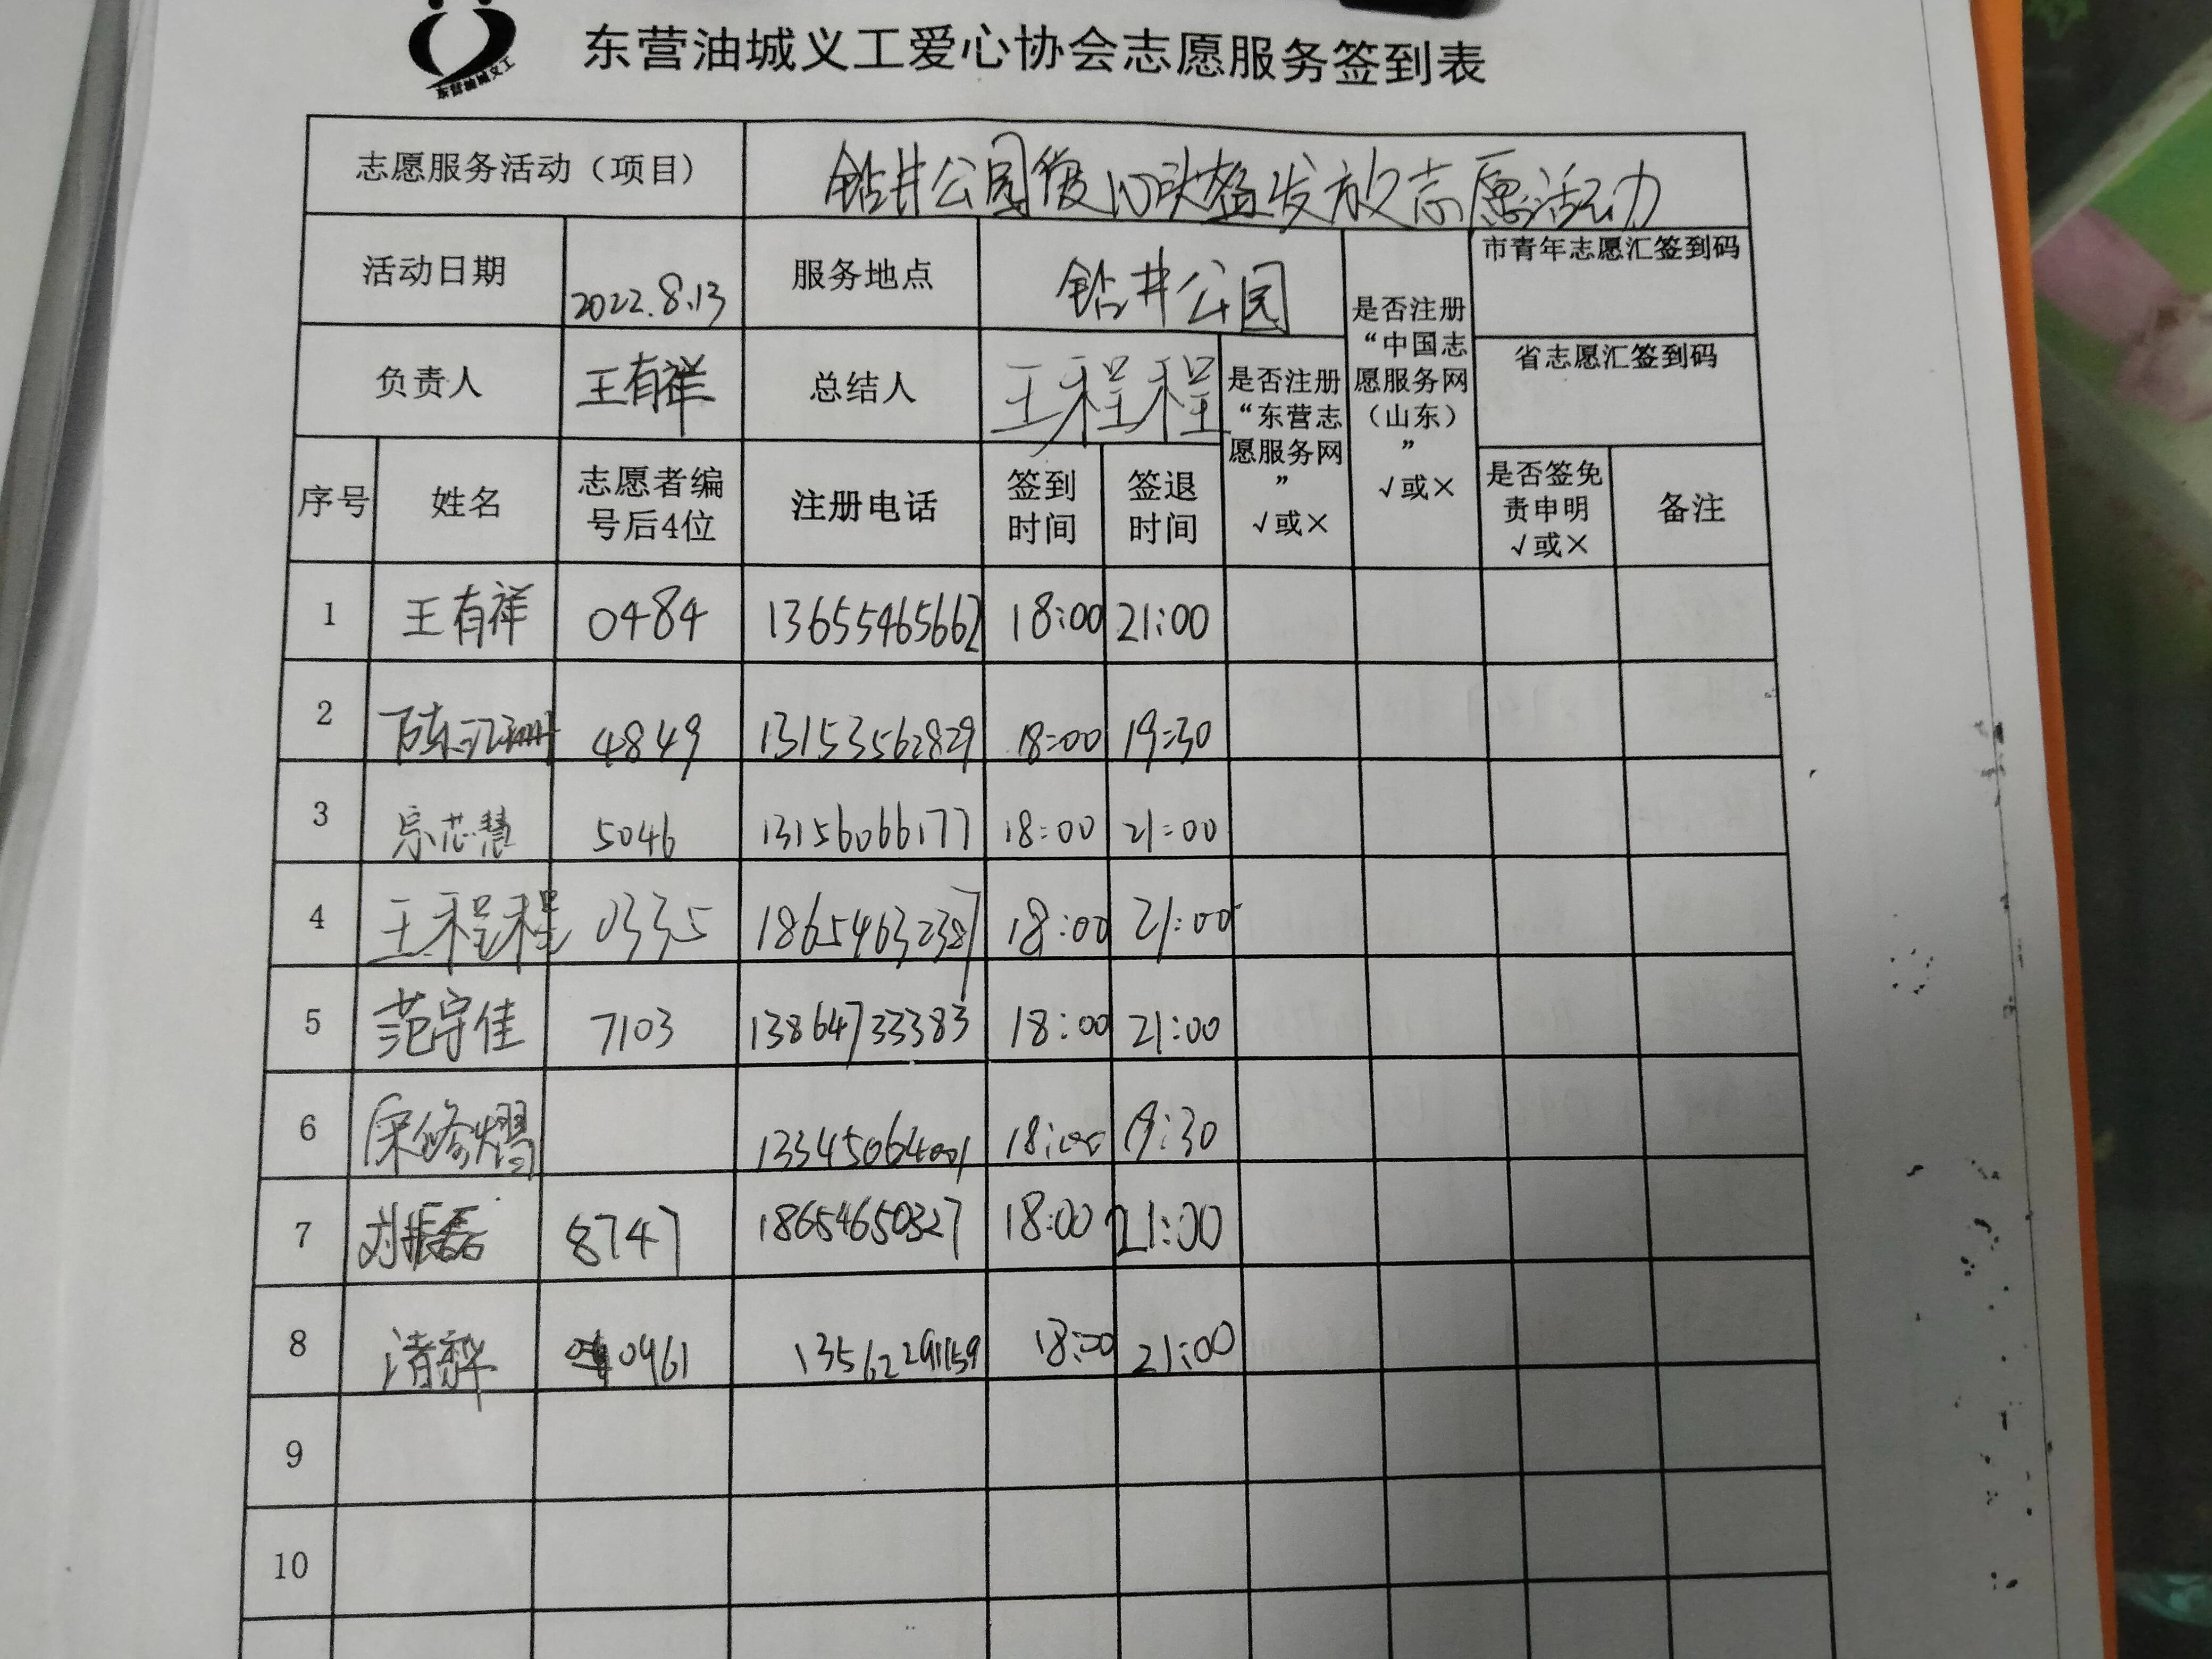 东营油城义工
东营油城义工爱心协会志愿服务签到表
志愿服务活动（项目） 钻井公园 发放志愿活动
活动日期 2022.8.13 服务地点 钻井公园
是否注册“中国志愿服务网（山东）” √或×
市青年志愿汇签到码
负责人 王有祥 总结人 王程程
是否注册“东营志愿服务网” √或×
省志愿汇签到码
序号 姓名 志愿者编号后4位 注册电话 签到时间 签退时间 是否签免责申明 √或× 备注
1 王有祥 0484 13655465662 18:00 21:00
2 4849 13153562829 18:00 19:30
3 宗芯慧 5046 13156066177 18:00 21:00
4 王程程 0335 18654632387 18:00 21:00
5 范守佳 7103 13864733383 18:00 21:00
6 18:00 19:30
7 刘振磊 8747 18654650327 18:00 21:00
8 0961 18:00 21:00
9
10